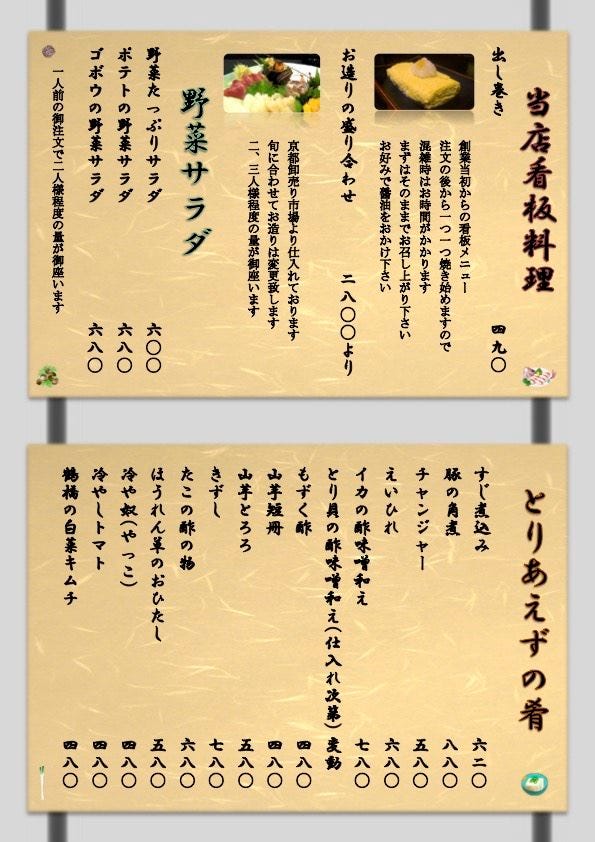 当店看板料理
出し巻き 四九〇
創業当初からの看板メニュー
注文の後から一つ一つ焼き始めますので
混雑時はお時間がかかります
まずはそのままでお召し上がり下さい
お好みで醤油をおかけ下さい
お造りの盛り合わせ 二八〇〇より
京都卸売り市場より仕入れております
旬に合わせてお造りは変更致します
二、三人様程度の量が御座います
野菜サラダ
野菜たっぷりサラダ 六〇〇
ポテトの野菜サラダ 六八〇
ゴボウの野菜サラダ 六八〇
一人前の御注文で二人様程度の量が御座います
とりあえずの肴
すじ煮込み 六二〇
豚の角煮 八八〇
チャンジャー 五八〇
えいひれ 六八〇
イカの酢味噌和え 七八〇
とり貝の酢味噌和え(仕入れ次第) 変動
もずく酢 四八〇
山芋短冊 四八〇
山芋とろろ 五八〇
きずし 七八〇
たこの酢の物 六八〇
ほうれん草のおひたし 五八〇
冷や奴(やっこ) 四八〇
冷やしトマト 四八〇
鶴橋の白菜キムチ 四八〇